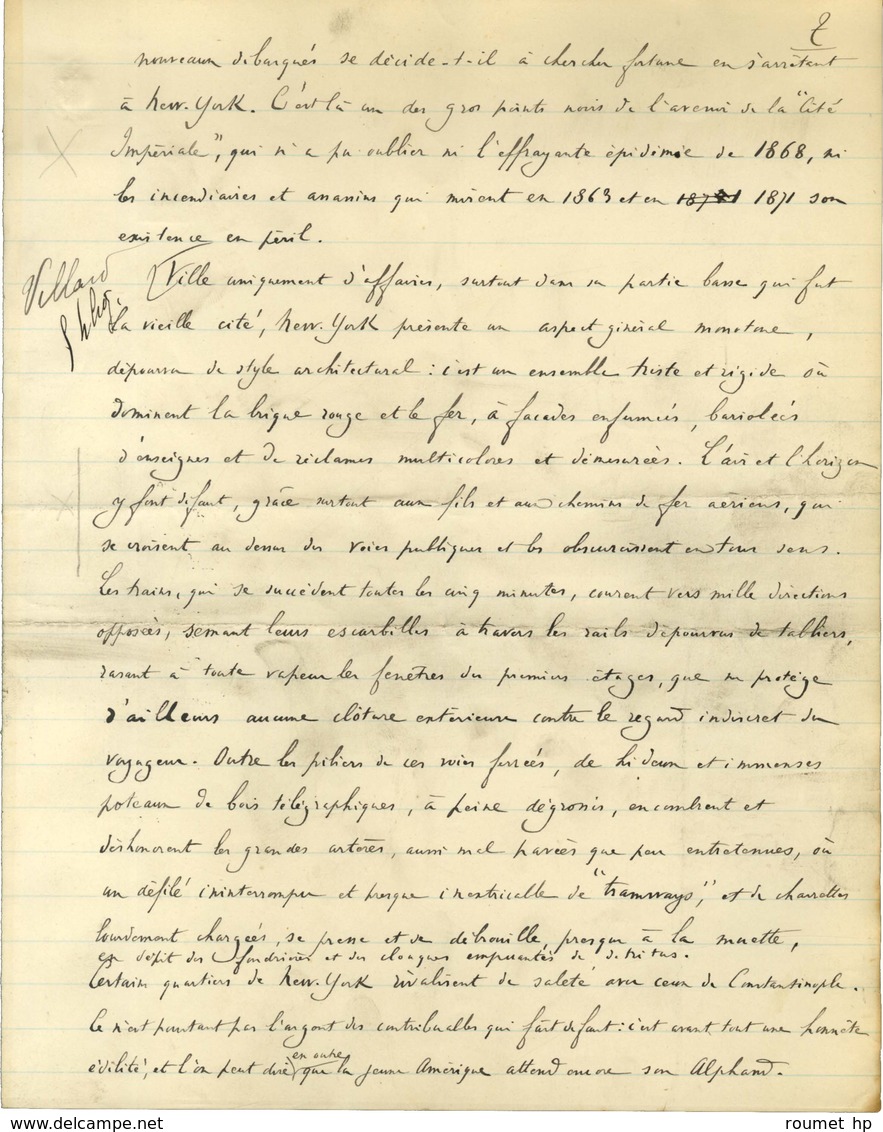 7
nouveaux débarqués se décide-t-il à chercher fortune en s'arrêtant
à New-York. C'est là un des gros points noirs de l'avenir de la "Cité
Impériale", qui n'a pu oublier ni l'effrayante épidémie de 1868, ni
les incendiaires et assassins qui mirent en 1863 et en 1871 son
existence en péril.
Ville uniquement d'affaires, surtout dans sa partie basse qui fut
la vieille cité, New-York présente un aspect général monotone,
dépourvu de style architectural : c'est un ensemble triste et rigide où
dominent la brique rouge et le fer, à façades enfumées, bariolées
d'enseignes et de réclames multicolores et démesurées. L'air et l'horizon
y font défaut, grâce surtout aux fils et aux chemins de fer aériens, qui
se croisent au dessus des voies publiques et les obscurcissent en tous sens.
Les trains, qui se succèdent toutes les cinq minutes, courent vers mille directions
opposées, semant leurs escarbilles à travers les rails dépourvus de tabliers,
rasant à toute vapeur les fenêtres des premiers étages, que ne protège
d'ailleurs aucune clôture extérieure contre le regard indiscret du
voyageur. Outre les piliers de ces voies ferrées, de hideux et immenses
poteaux de bois télégraphiques, à peine dégrossis, encombrent et
déshonorent les grandes artères, aussi mal pavées que peu entretenues, où
un défilé ininterrompu et presque inextricable de "tramways", et de charrettes
lourdement chargées, se presse et se débrouille, presque à la muette,
en dépit des fondrières et des cloaques empuantés de detritus.
Certains quartiers de New-York rivalisent de saleté avec ceux de Constantinople.
Ce n'est pourtant pas l'argent des contribuables qui fait défaut : c'est avant tout une honnête
édilité, et l'on peut dire en outre que la jeune Amérique attend encore son Alphand.
roumet hp